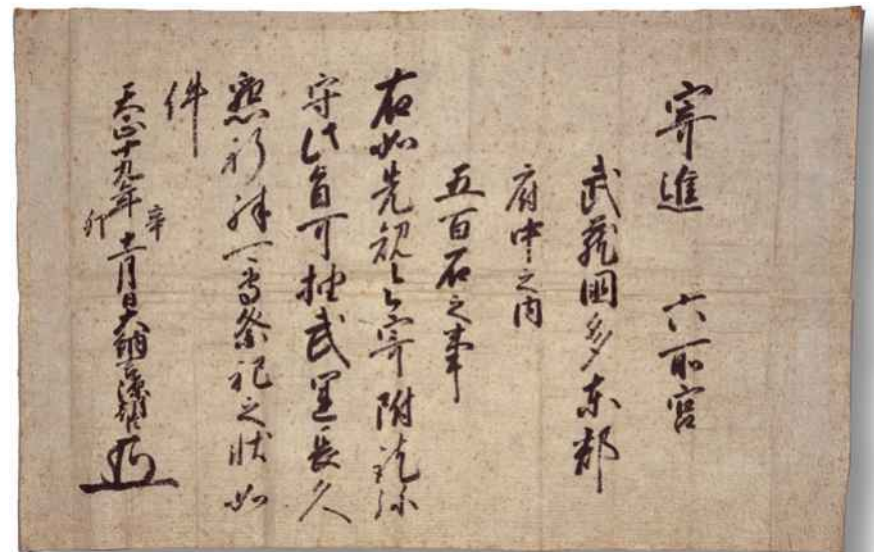 寄進 六所宮
武蔵國多東郡
府中之内
五百石之事
右如先規令寄附訖弥
守此旨可抽武運長久
懇祈殊可専祭祀之状如
件
天正十九年辛卯十一月日大納言源朝臣